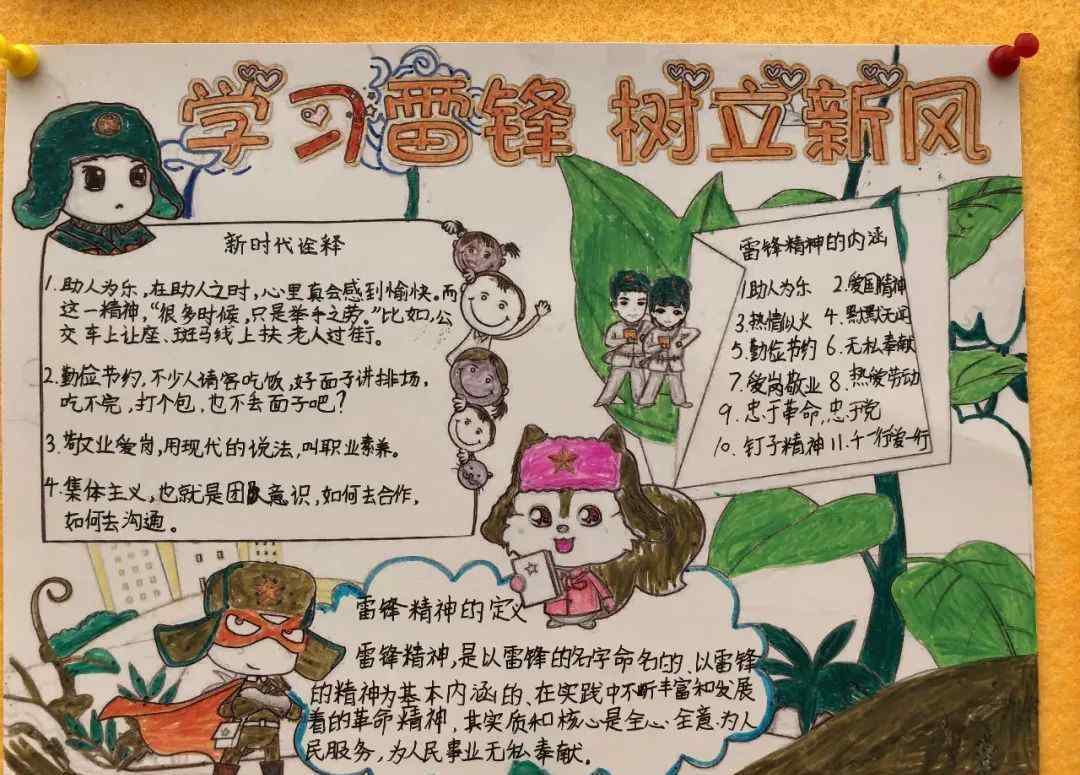 学习雷锋 树立新风
新时代诠释
1.助人为乐,在助人之时,心里真会感到愉快。而
这一精神,“很多时候,只是举手之劳。”比如,公
交车上让座、斑马线上扶老人过街。
2.勤俭节约,不少人请客吃饭,好面子讲排场,
吃不完,打个包,也不丢面子吧?
3.敬业爱岗,用现代的说法,叫职业素养。
4.集体主义,也就是团队意识,如何去合作,
如何去沟通。
雷锋精神的内涵
1助人为乐 2.爱国精神
3.热情似火 4.默默无闻
5.勤俭节约 6.无私奉献
7.爱岗敬业 8.热爱劳动
9.忠于革命,忠于党
10.钉子精神 11.干一行爱一行
雷锋精神的定义
雷锋精神,是以雷锋的名字命名的、以雷锋
的精神为基本内涵的、在实践中不断丰富和发展
着的革命精神,其实质和核心是全心全意为人
民服务,为人民事业无私奉献.